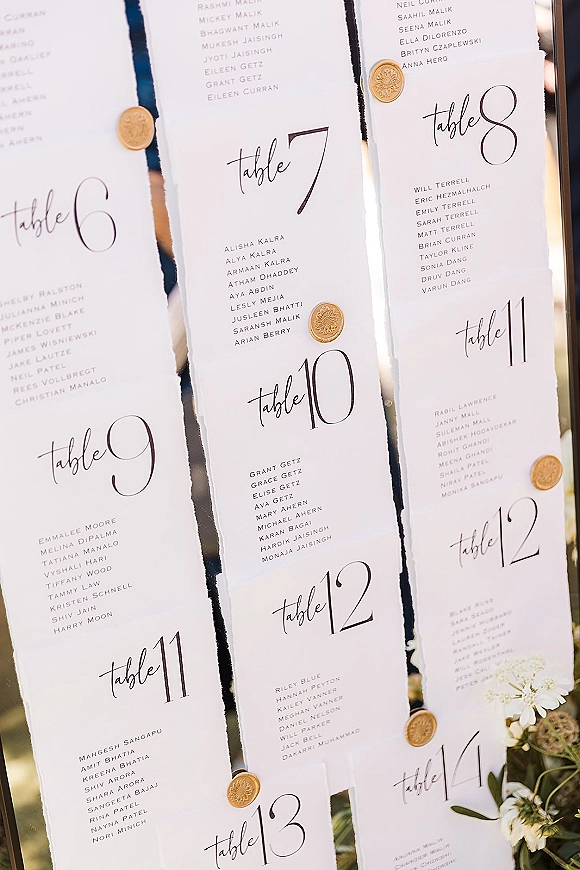 CURRAN
AHERN
AHERN
table 6
SHELBY RALSTON
JULIANNA MINICH
MCKENZIE BLAKE
PIPER LOVETT
JAMES WISNIEWSKI
JAKE LAUTZE
NEIL PATEL
REES VOLLBREGT
CHRISTIAN MANALO
table 9
EMMALEE MOORE
MELINA DIPALMA
TATIANA MANALO
VYSHALI HARI
TIFFANY WOOD
TAMMY LAW
KRISTEN SCHNELL
SHIV JAIN
HARRY MOON
table 11
MANGESH SANGAPU
AMIT BHATIA
KREENA BHATIA
SHIV ARORA
SHARA ARORA
SANGEETA BAJAJ
RINA PATEL
NAYNA PATEL
NORI MINICH
RASHMI MALIK
MICKEY MALIK
BHAGWANT MALIK
MUKESH JAISINGH
JYOTI JAISINGH
EILEEN GETZ
GRANT GETZ
EILEEN CURRAN
table 7
ALISHA KALRA
ALYA KALRA
ARMAAN KALRA
ATHAM DHADDEY
AYA ABDIN
LESLY MEJIA
JUSLEEN BHATTI
SARANSH MALIK
ARIAN BERRY
table 10
GRANT GETZ
GRACE GETZ
ELISE GETZ
AVA GETZ
MARY AHERN
MICHAEL AHERN
KARAN BAGAI
HARDIK JAISINGH
MONAJA JAISINGH
table 12
RILEY BLUE
HANNAH PEYTON
KAILEY VANNER
MEGHAN VANNER
DANIEL NELSON
WILL PARKER
JACK BELL
DAKARRI MUHAMMAD
table 13
NEIL
SAAHIL MALIK
SEENA MALIK
ELLA DILORENZO
BRITYN CZAPLEWSKI
ANNA HERO
table 8
WILL TERRELL
ERIC HEZMALHALCH
EMILY TERRELL
SARAH TERRELL
MATT TERRELL
BRIAN CURRAN
TAYLOR KLINE
SONIA DANG
DRUV DANG
VARUN DANG
table 11
RABIL LAWRENCE
JANNY MALL
SULEMAN MALL
ABISHEK HODAVDEKAR
ROHIT GHANDI
MEENA GHANDI
SHAILA PATEL
NIRAV PATEL
MONIKA SANGAPU
table 12
BLAKE RUSS
JENNIE HUBBARD
LAUREN ZUGER
table 14